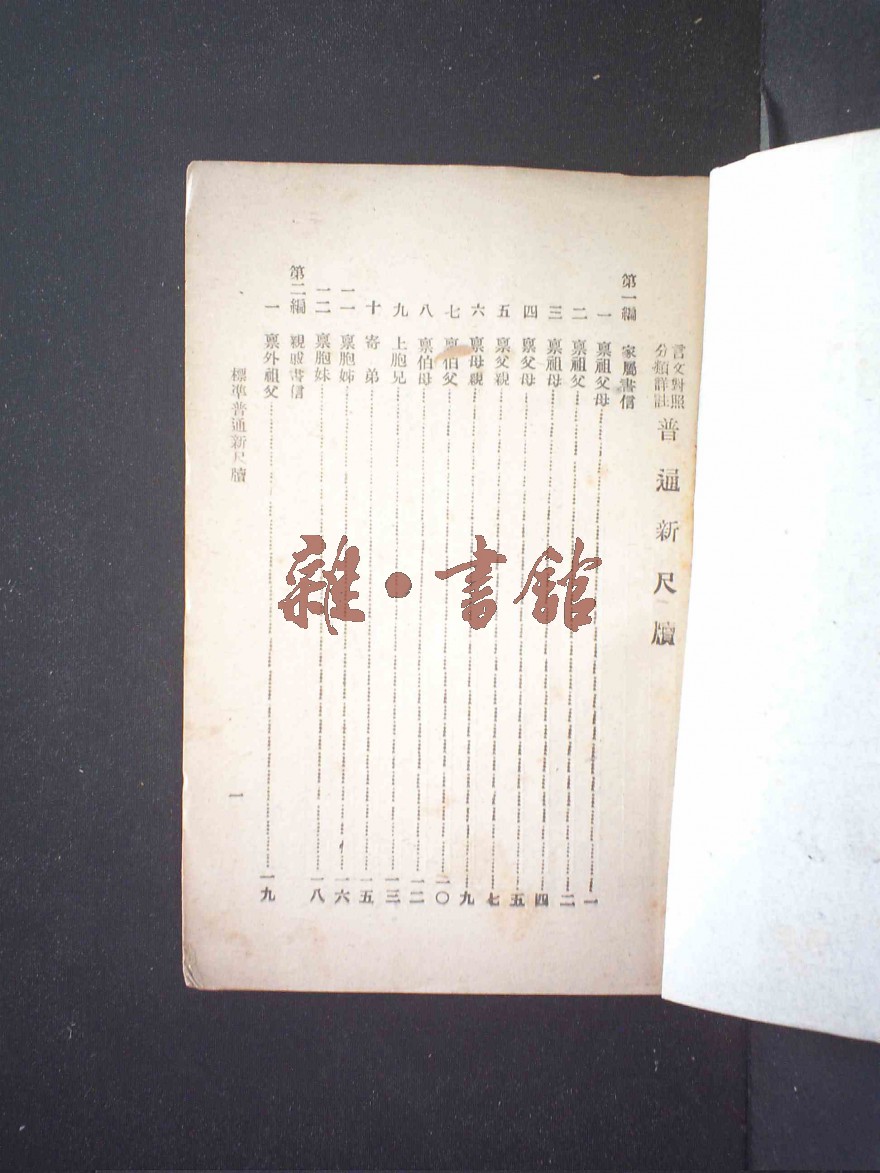 言文對照
分類詳註
普通新尺牘
第一編 家屬書信
一 稟祖父母 一
二 稟祖父 二
三 稟祖母 四
四 稟父母 五
五 稟父親 七
六 稟母親 九
七 稟伯父 一〇
八 稟伯母 一二
九 上胞兄 一三
十 寄弟 一五
一一 稟胞姊 一六
一二 稟胞妹 一八
第二編 親戚書信
一 稟外祖父 一九
標準普通新尺牘
一
雜·書館